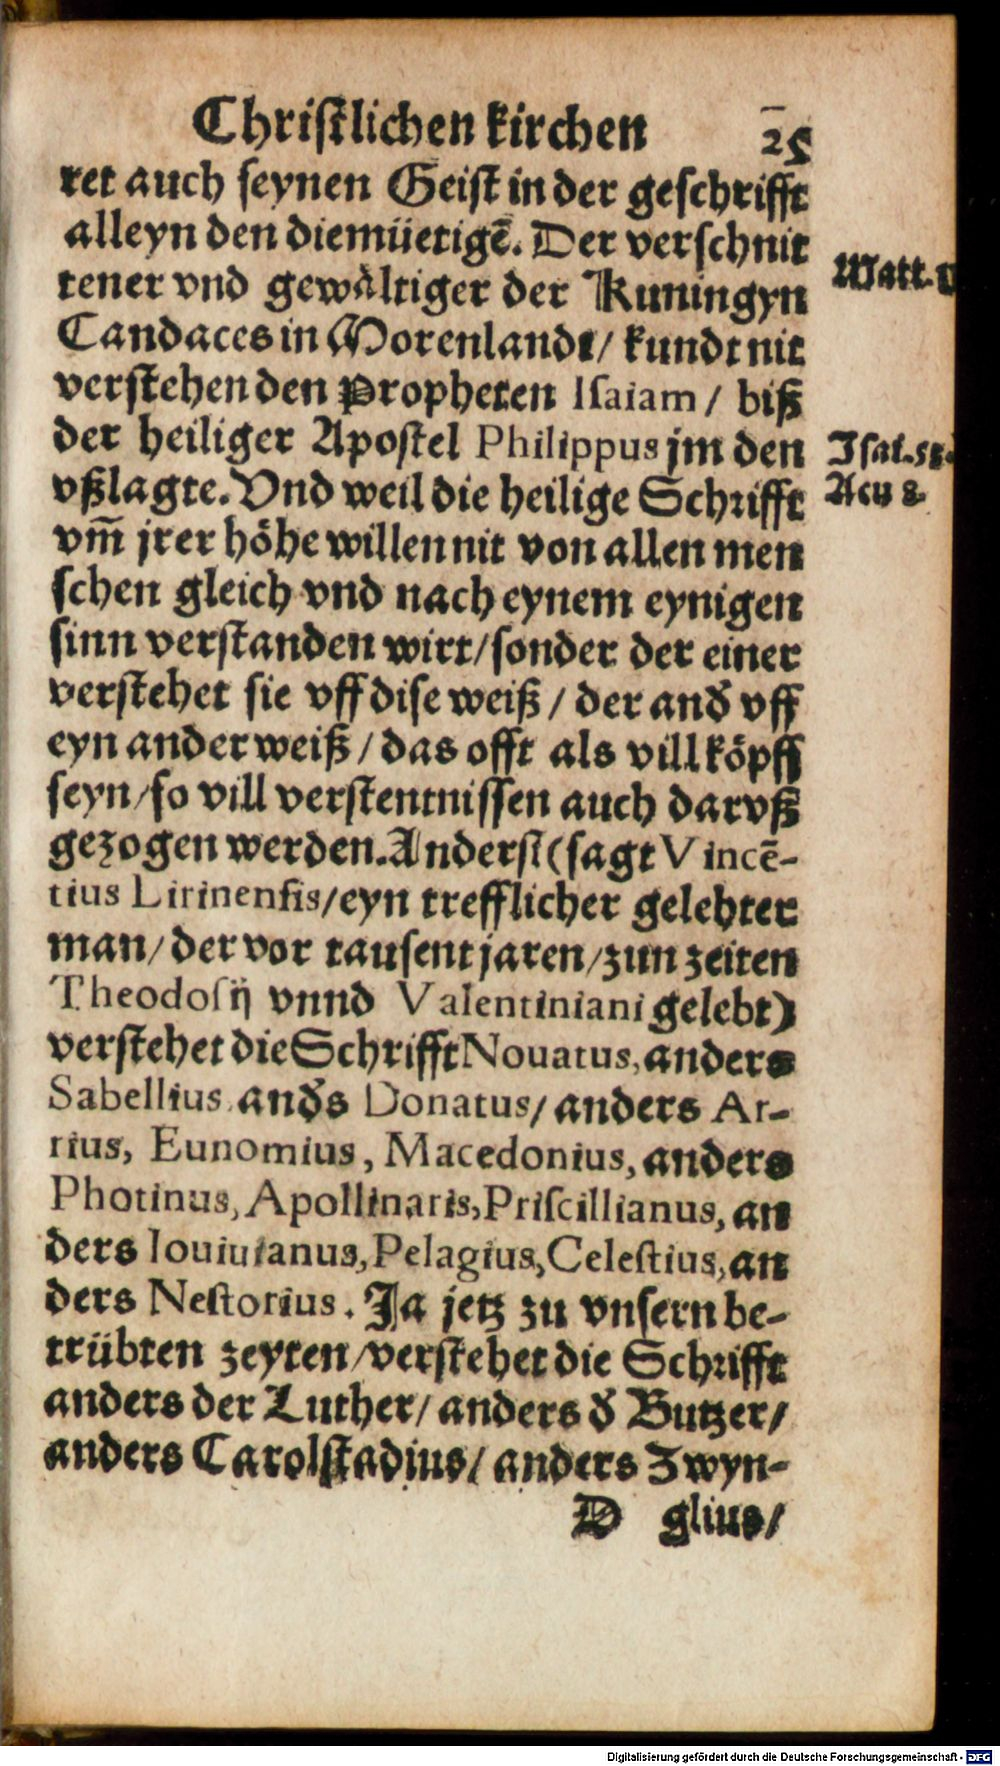 Chriſtlichen kirchen 25
ret auch ſeynen Geiſt in der geſchrifft
alleyn den diemüetigē. Der verſchnit
tener vnd gewåltiger der Kuningyn
Matt.
Candaces in Morenlandt/ kundt nit
verſtehen den Propheten Iſaiam/ biß
der heiliger Apoſtel Philippus jm den
Iſai. 53.
vßlagte. Vnd weil die heilige Schrifft
Actu 8.
vm̄ jrer höhe willen nit von allen men
ſchen gleich vnd nach eynem eynigen
ſinn verſtanden wirt/ ſonder der einer
verſtehet ſie vff diſe weiß/ der andˀ vff
eyn ander weiß/ das offt als vill köpff
ſeyn/ ſo vill verſtentniſſen auch darvß
gezogen werden. Anderſt (ſagt Vincē-
tius Lirinenſis/ eyn trefflicher gelehter
man/ der vor tauſent jaren/ zun zeiten
Theodoſij vnnd Valentiniani gelebt)
verſtehet die Schrifft Nouatus, anders
Sabellius, andˀs Donatus/ anders Ar-
rius, Eunomius, Macedonius, anders
Photinus, Apollinaris, Priſcillianus, an
ders Iouiuianus, Pelagius, Celeſtius, an
ders Neſtorius. Ja jetz zu vnſern be-
trübten zeyten/ verſtehet die Schrifft
anders der Luther/ anders dˀ Butzer/
anders Carolſtadius/ anders Zwyn-
D glius/
Digitalisierung gefördert durch die Deutsche Forschungsgemeinschaft - DFG